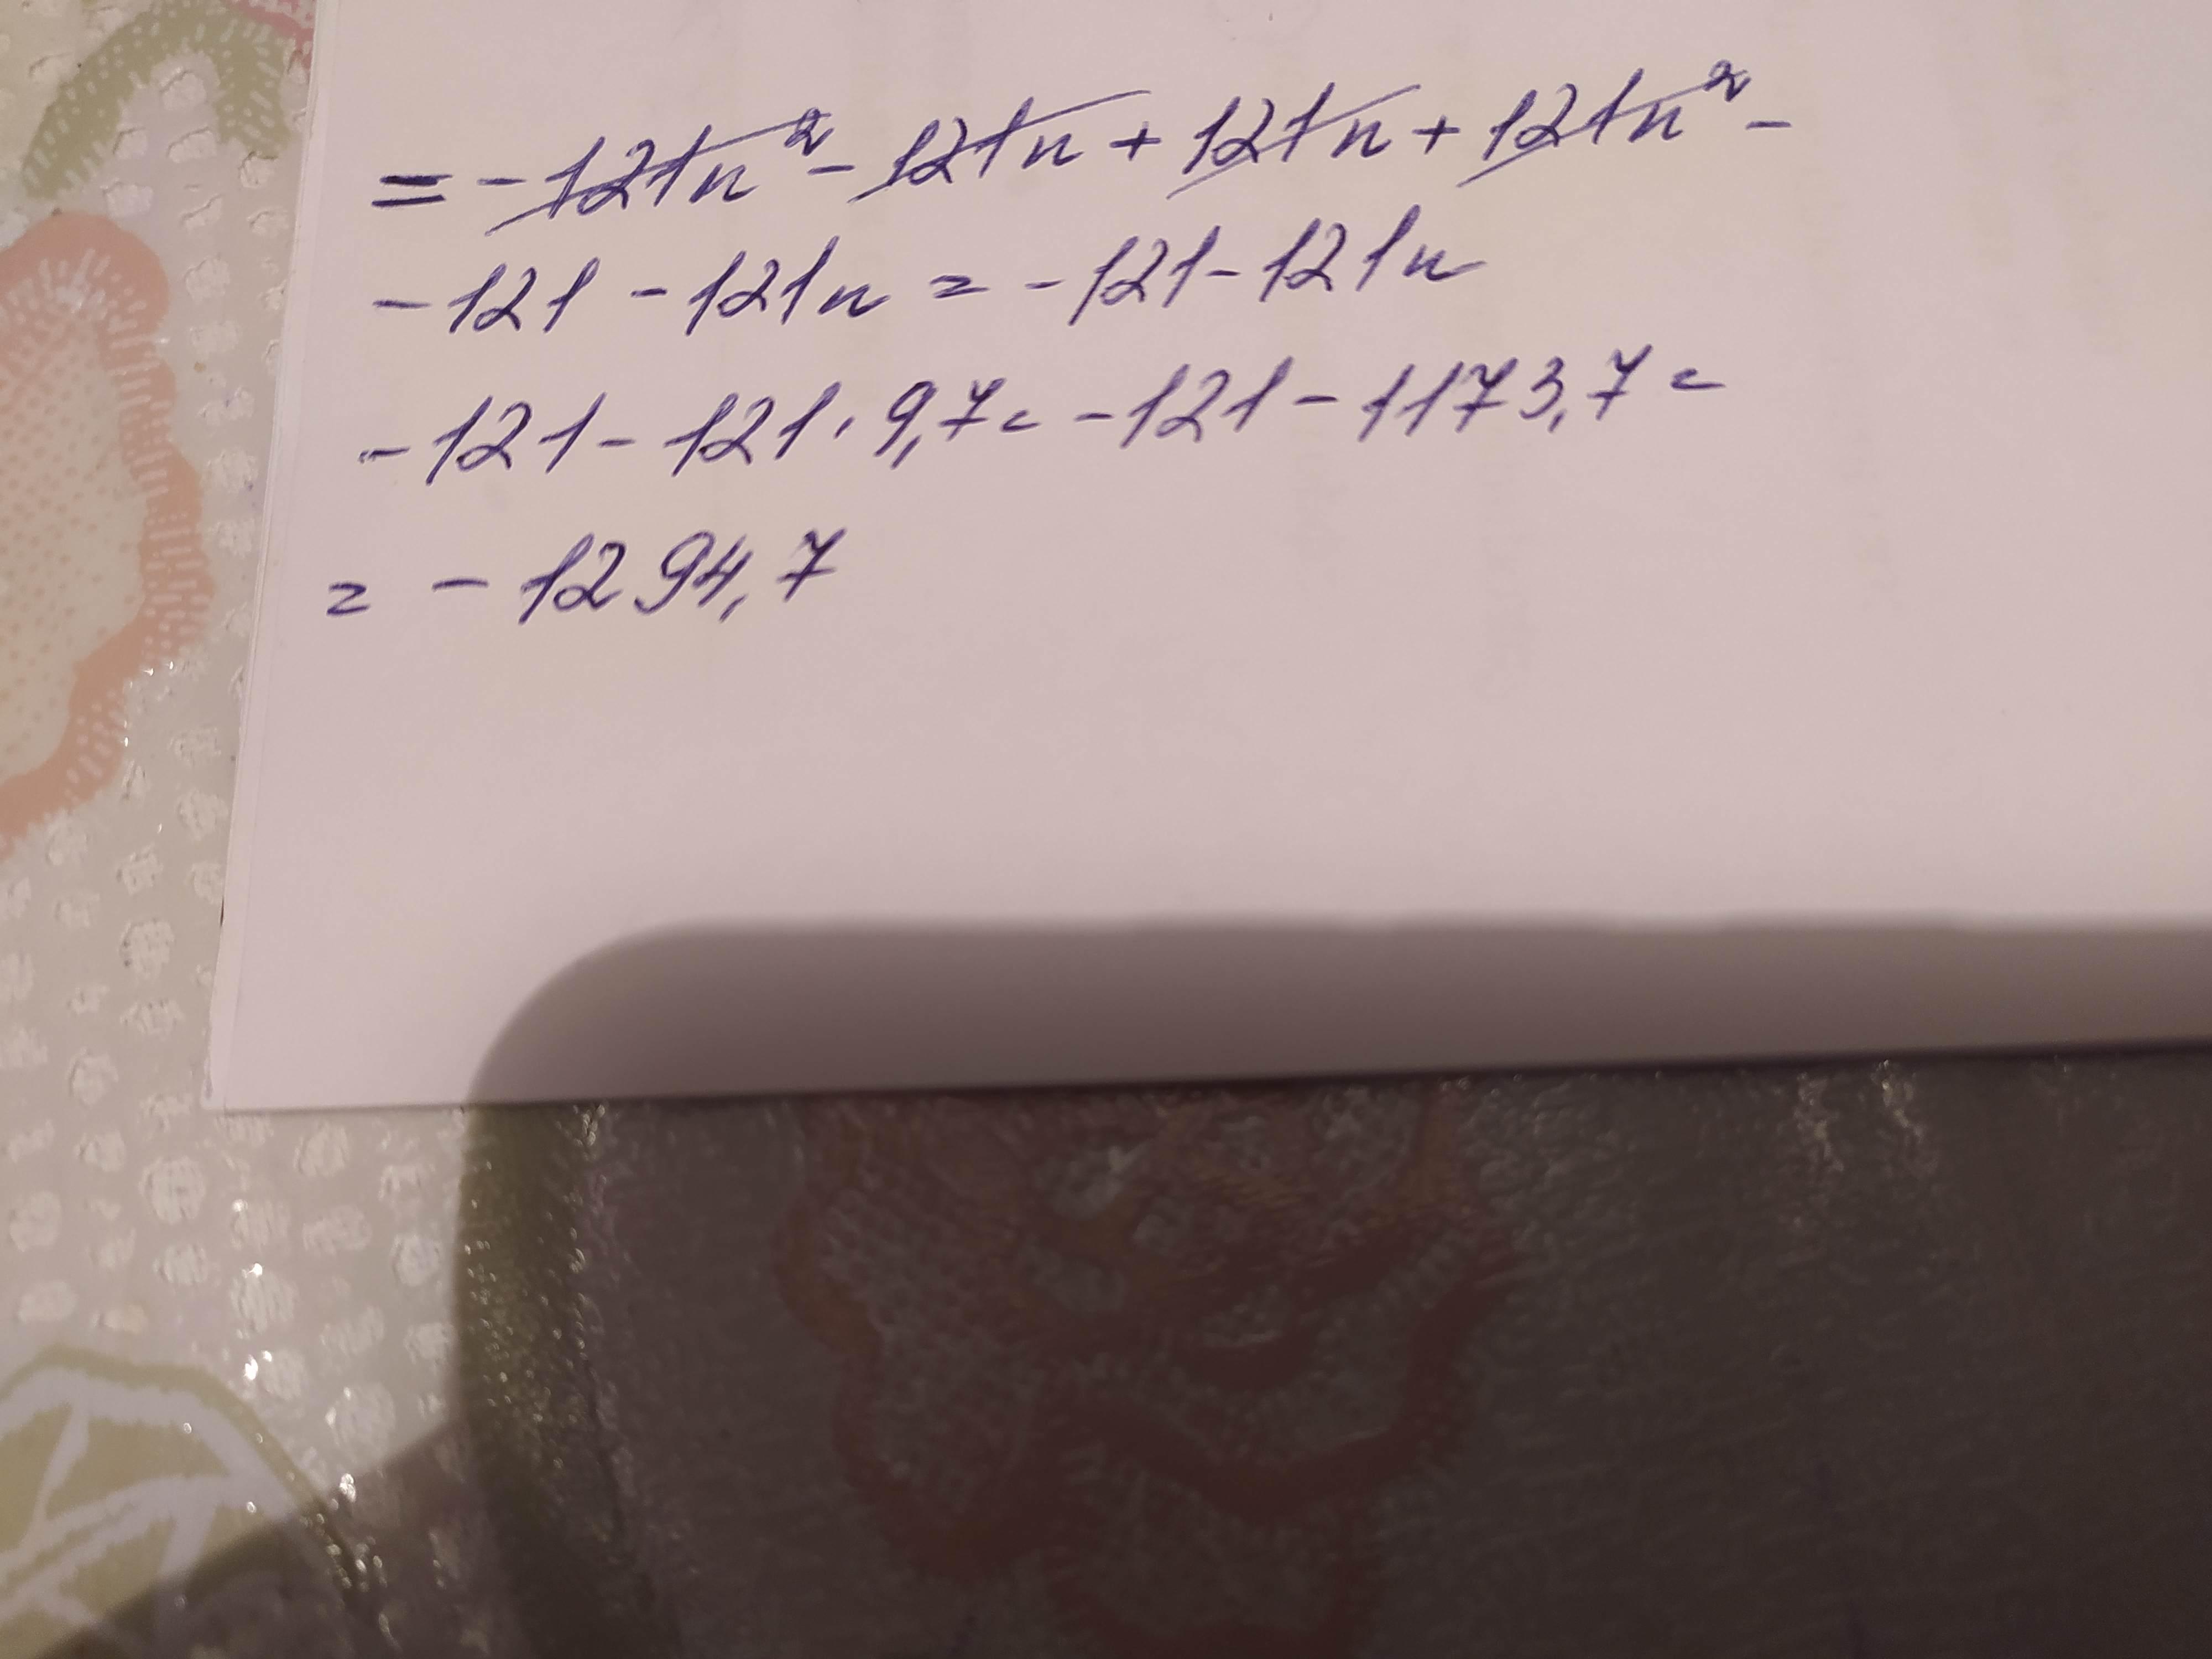 = - 121n² - 121n + 121n + 121n² -
- 121 - 121n = - 121 - 121n
- 121 - 121 · 9,7 = - 121 - 1173,7 =
= - 1294,7